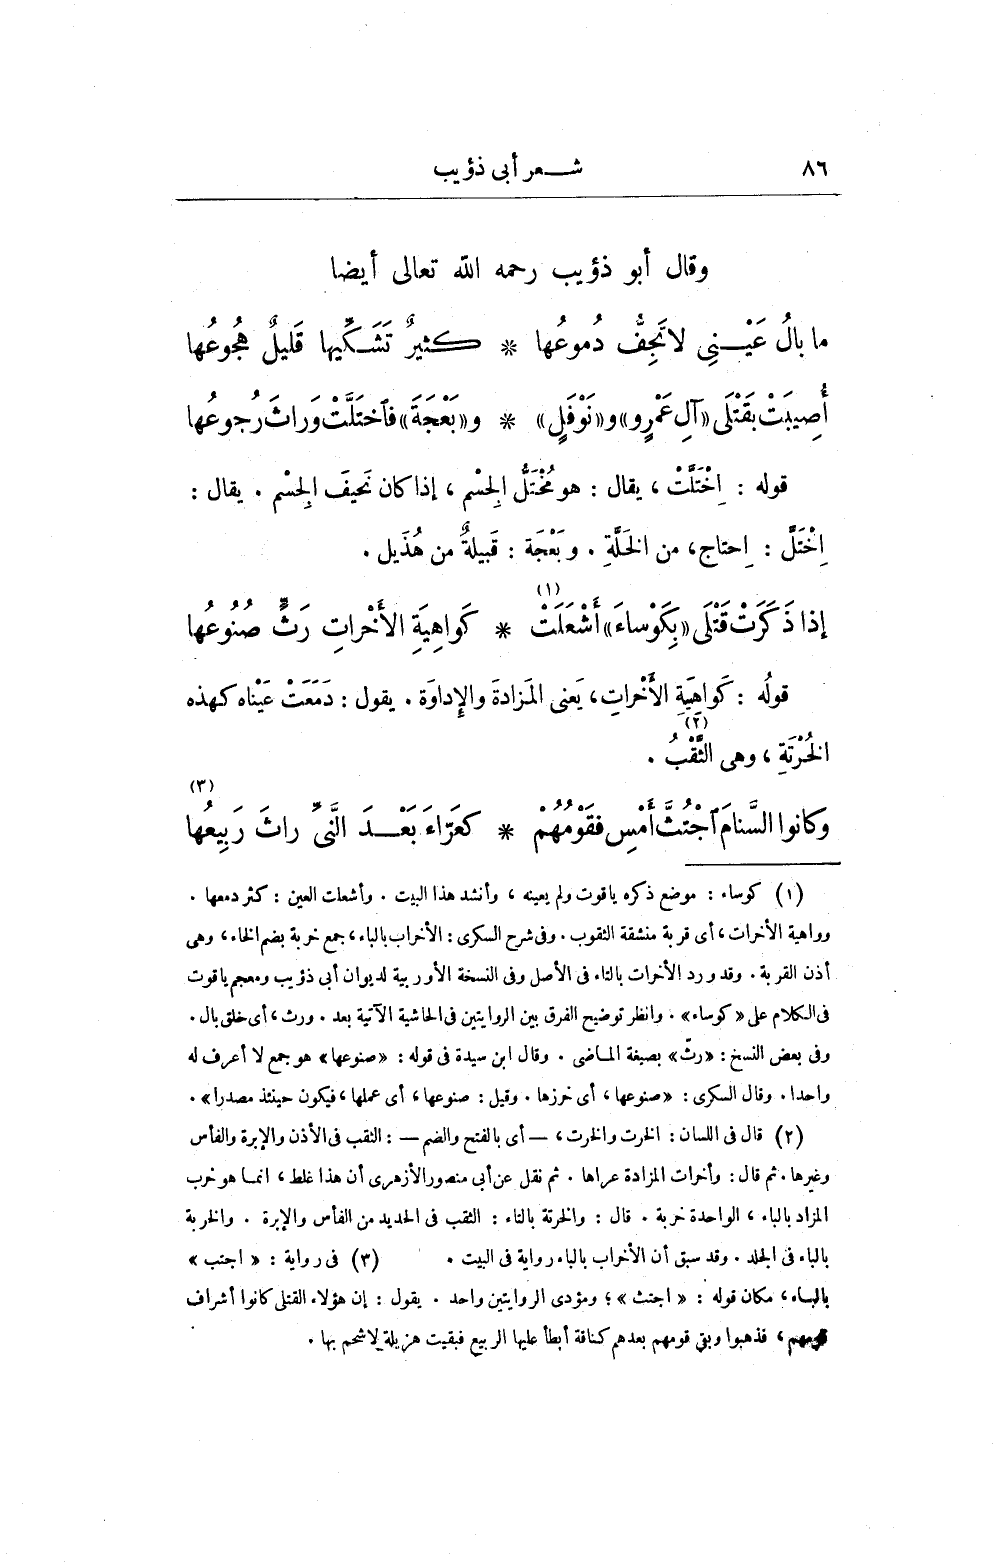 ٨٦ شعر أبى ذؤيب
وقال أبو ذؤيب رحمه الله تعالى أيضا
ما بالُ عَيْنِى لا تَجِفُّ دُموعُها * كثيرٌ تَشَكِّيها قَليلٌ هُجُوعُها
أُصِيبَتْ بقَتْلَى «آلِ عَمْرٍو» و«نَوْفَلٍ» * و«بَعْجَةَ» فٱختَلَّتْ وَراثَ رُجوعُها
قوله : اِخْتَلَّتْ ، يقال : هو مُخْتَلُّ الجِسْم ، إذا كان نَحيفَ الجِسْم . يقال :
اِخْتَلَّ : اِحتاج، من الخَلَّةِ . وبَعْجَة : قَبيلةٌ من هُذَيل .
(١)
إذا ذَكَرَتْ قَتْلَى «بِكَوْساءَ» أَشْعَلَتْ * كَواهِيَةِ الأَخْراتِ رَثٌّ صُنُوعُها
قولُه : كَواهِيَةِ الأَخْراتِ، يَعنى المَزادةَ والإداوَة . يقول : دَمَعَتْ عَيْناه كهذه
(٢)
الخُرْتَةِ ، وهى الثَّقْبُ .
(٣)
وكانوا السَّنامَ ٱجْتُثَّ أَمْسِ فقَوْمُهُمْ * كعَرّاءَ بَعْدَ النَّىِّ راثَ رَبِيعُها
(١) كوساء : موضع ذكره ياقوت ولم يعينه ، وأنشد هذا البيت . وأشعلت العين : كثر دمعها .
وواهية الأخرات، أى قربة منشقة الثقوب . وفى شرح السكرى : الأخراب بالباء، جمع خربة بضم الخاء، وهى
أذن القربة . وقد ورد الأخرات بالتاء فى الأصل وفى النسخة الأوربية لديوان أبى ذؤيب ومعجم ياقوت
فى الكلام على «كوساء» . وانظر توضيح الفرق بين الروايتين فى الحاشية الآتية بعد . ورث، أى خلق بال .
وفى بعض النسخ : «رثّ» بصيغة الماضى . وقال ابن سيدة فى قوله : «صنوعها» هو جمع لا أعرف له
واحدا. وقال السكرى : «صنوعها ، أى خرزها . وقيل : صنوعها ، أى عملها ، فيكون حينئذ مصدرا» .
(٢) قال فى اللسان : الخرت والخرت، — أى بالفتح والضم — : الثقب فى الأذن والإبرة والفأس
وغيرها. ثم قال : وأخرات المزادة عراها . ثم نقل عن أبى منصور الأزهرى أن هذا غلط ، انما هو خرب
المزاد بالباء ، الواحدة خربة . قال : والخرتة بالتاء : الثقب فى الحديد من الفأس والإبرة . والخربة
بالباء فى الجلد . وقد سبق أن الأخراب بالباء رواية فى البيت . (٣) فى رواية : « اجتب »
بالباء، مكان قوله : « اجتث » ؛ ومؤدى الروايتين واحد . يقول : إن هؤلاء القتلى كانوا أشراف
قومهم ، فذهبوا وبقى قومهم بعدهم كناقة أبطأ عليها الربيع فبقيت هزيلة لا شحم بها .